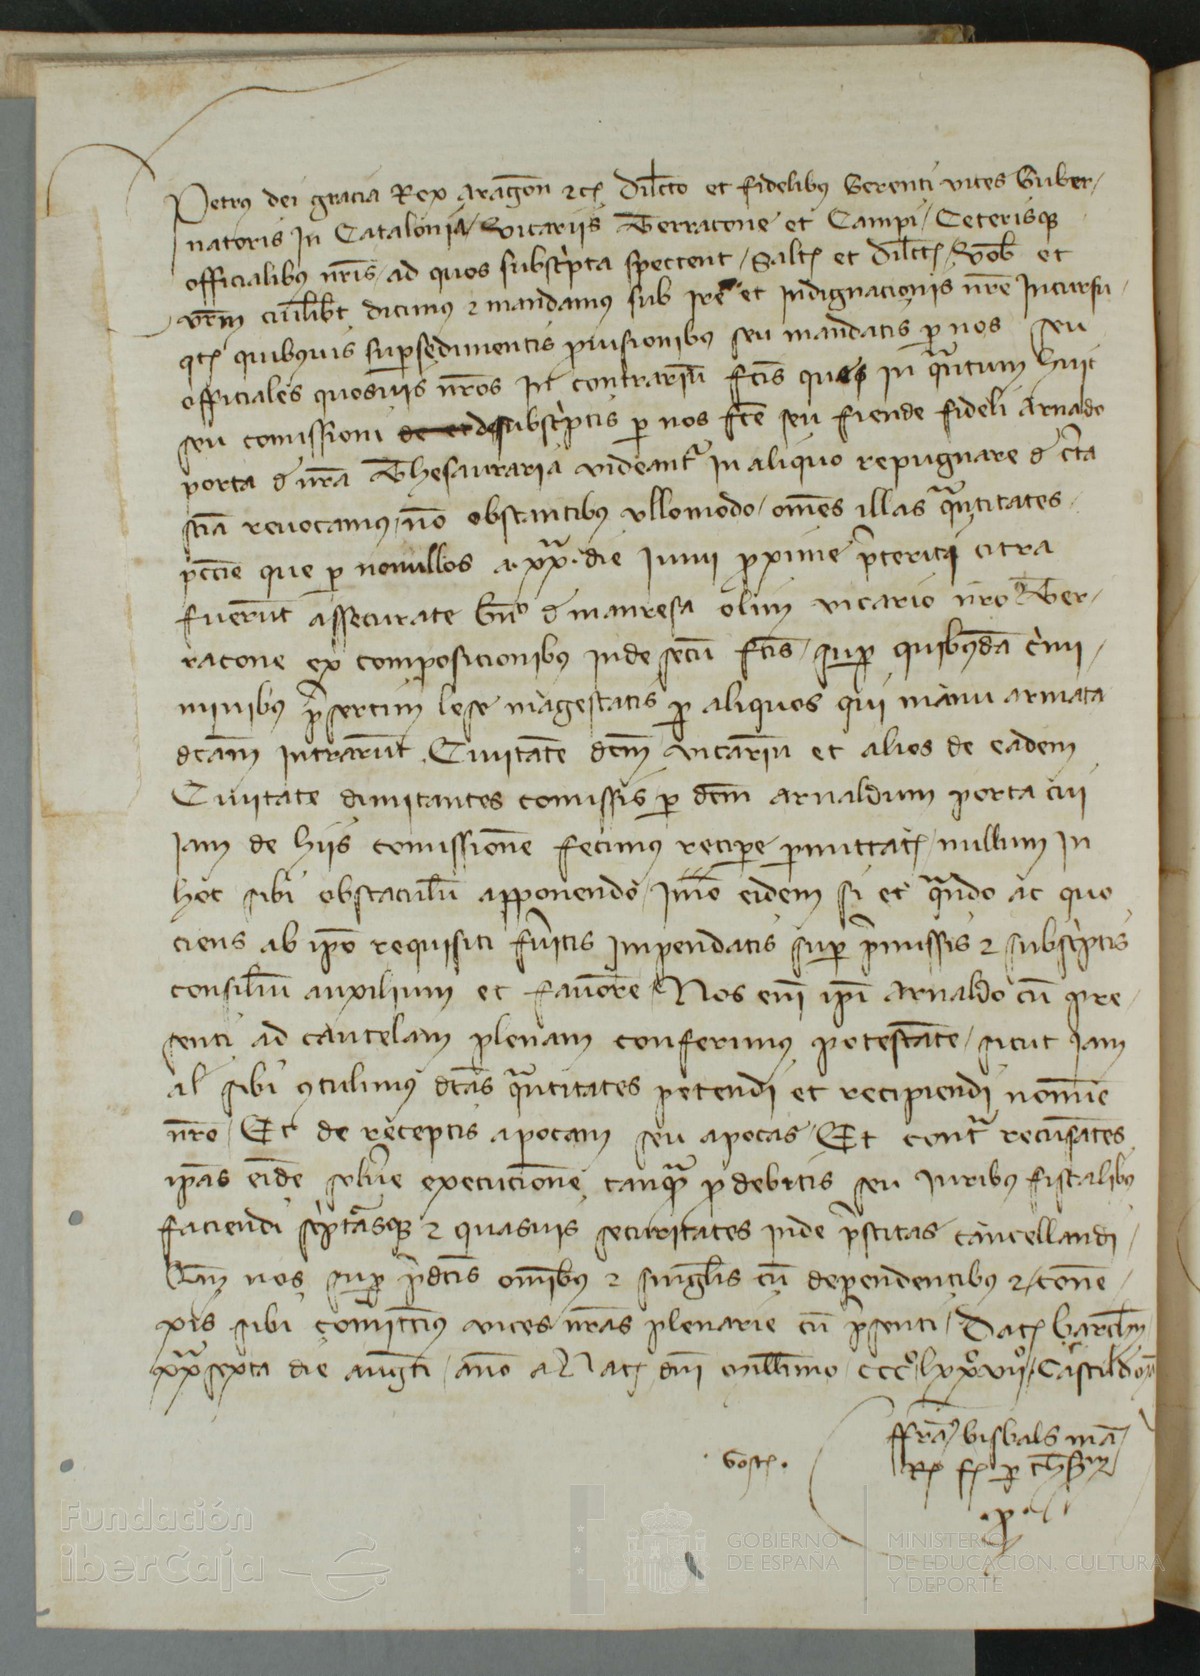 Petrus dei gracia Rex Aragon etc dilecto et fidelibus Gerenti vices Guber/
natoris in Catalonia / vicariis Terracone et Campi / Ceterisque
officialibus nr̄is / ad quos subscripta spectent / Salt̄ et dilcc̄ / Vob̄ et
vr̄m cuil̄ibt dicimus et mandamus sub ire et indignacionis nr̄e incursu /
qt̄ quibusvis supersedimentis provisionibus seu mandatis per nos seu
officiales quosvis nr̄os in contrariū fc̄is que in quantum huic
seu comissioni subscriptis per nos fc̄e seu fiende fideli Arnaldo
porta de nr̄a Thesauraria videantur in aliquo repugnare de cr̄ta
scīa revocamus / nō obstantibus ullomodo / omēs illas quantitates
peccūie que per nonullos a xxª die Iunii proxime preteriti citra
fuerūt assecurate Guillo de manresa olim vicario nr̄o Ter/
racone ex composicionibus inde secū fc̄is / super quibusdā crimi/
minibus presertim lese magestatis per aliquos qui manu armata
dcām intrarūt Civitatē dcm̄ vicariū et alios de eadem
Civitate dimitantes comissis per dcm̄ Arnaldum porta cui
Iam de hiis comissionē fecimus recipere permittatis / nullum in
hoc sibi obstaculū apponendo / Immo eidem si et quando ac quo
ciens ab ip̄o requisiti fueritis impendatis super premissis et subscriptis
consiliū auxilium et favorē / Nos enī ip̄i Arnaldo cū pre/
senti ad cautelam plenam conferimus potestatē / sicut iam
al̄ sibi contulimus dcās quantitates petendi et recipiendi nomīe
nr̄o / Et de receptis apocam seu apocas / Et contra recusātes
ip̄as eidē solvere execucionē tanquam pro debitis seu iuribus fiscalibus
faciendi scriptasque et quasvis securitates inde prestitas cancellandi /
Nam nos super predictis omībus et singulis cū dependentibus et conne/
xis sibi comittimus vices nr̄as plenarie cū presenti / Dat̄ barchn̄
xxª sexta die augusti / anno a Nat̄ dn̄i millīmo / cccº lxxºviiº /
ffrā visbals mā
Rx̄ f̄ per thesr̄
p